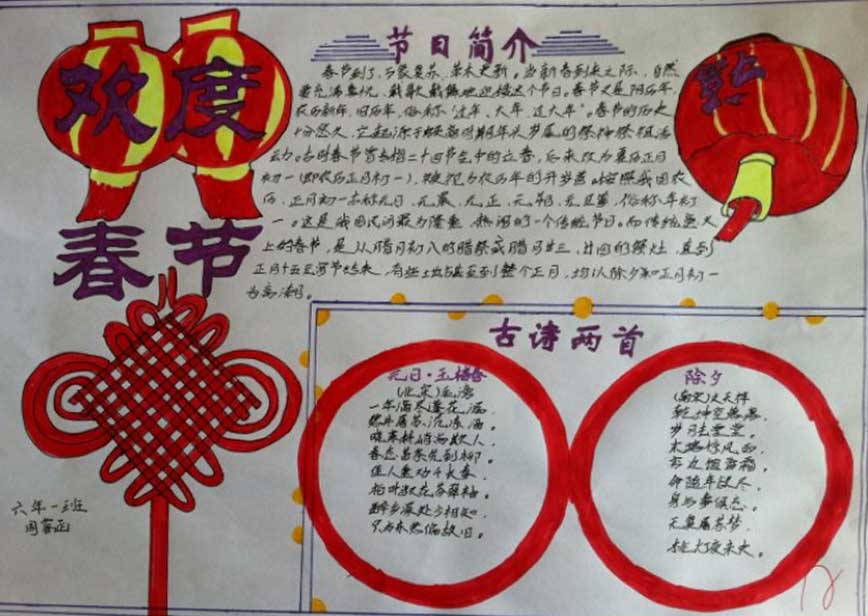 欢度
春节
节日简介
春节到了,万家复苏,草木更新。当新春到来之际,自然
要充满喜悦、载歌载舞地迎接这个节日。春节又是阴历年,
农历新年、旧历年,俗称“过年、大年、过大年”。春节的历史
十分悠久,它起源于殷商时期年头岁尾的祭神祭祖活
动。古时春节曾专指二十四节气中的立春,后来改为夏历正月
初一(即农历正月初一),被视为农历年的开岁首。按照我国农
历,正月初一古称元日、元辰、元正、元朔、元旦等,俗称年初
一。这是我国民间最为隆重、热闹的一个传统节日。而传统意义
上的春节,是从腊月初八的腊祭或腊月廿三、廿四的祭灶,直到
正月十五元宵节结束,有些土地甚至到整个正月,均以除夕和正月初一
为高潮。
古诗两首
元日·玉楼春
(北宋)毛滂
一年滴尽莲花漏。
碧井屠苏沉冻酒。
晓寒料峭尚欺人,
春态苗条先到柳。
佳人重劝千长寿。
柏叶椒花芬翠袖。
醉乡深处少相知,
只与东君偏故旧。
除夕
(南宋)文天祥
乾坤空落落,
岁月去堂堂。
末路惊风雨,
穷边饱雪霜。
命随年欲尽,
身与世俱忘。
无复屠苏梦,
挑灯夜未央。
六年一班